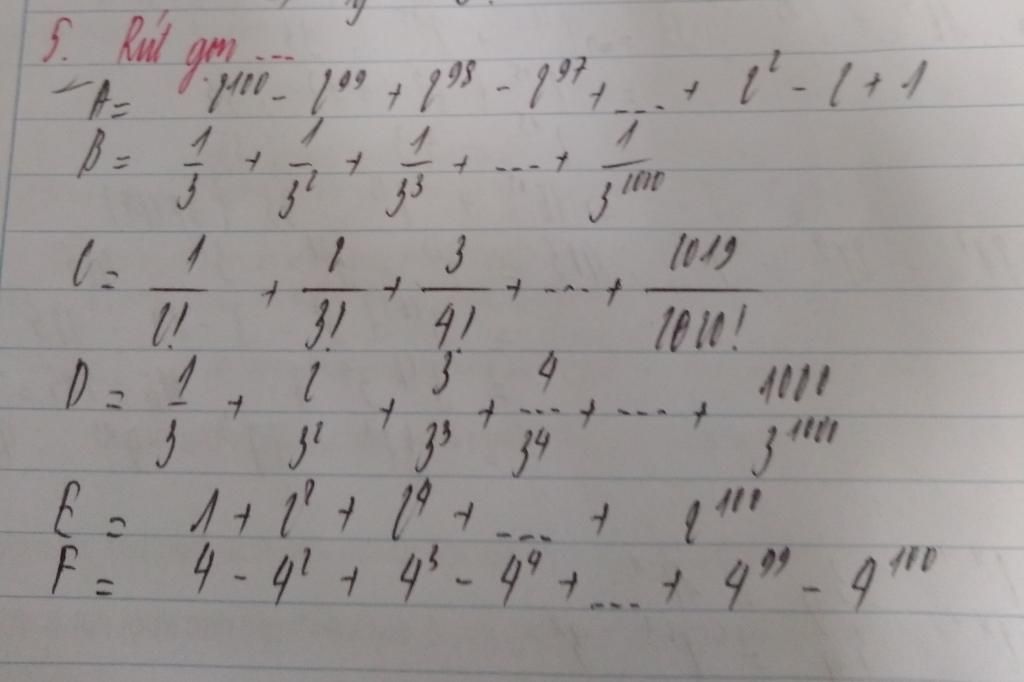 5. Rút gọn ...
A = 2^100 - 2^99 + 2^98 - 2^97 + .... + 2^2 - 2 + 1
B = 1/3 + 1/3^2 + 1/3^3 + .... + 1/3^2020
C = 1/2! + 2/3! + 3/4! + .... + 2019/2020!
D = 1/3 + 2/3^2 + 3/3^3 + 4/3^4 + .... + 1000/3^1000
E = 1 + 2^2 + 2^4 + .... + 2^100
F = 4 - 4^2 + 4^3 - 4^4 + .... + 4^99 - 4^100